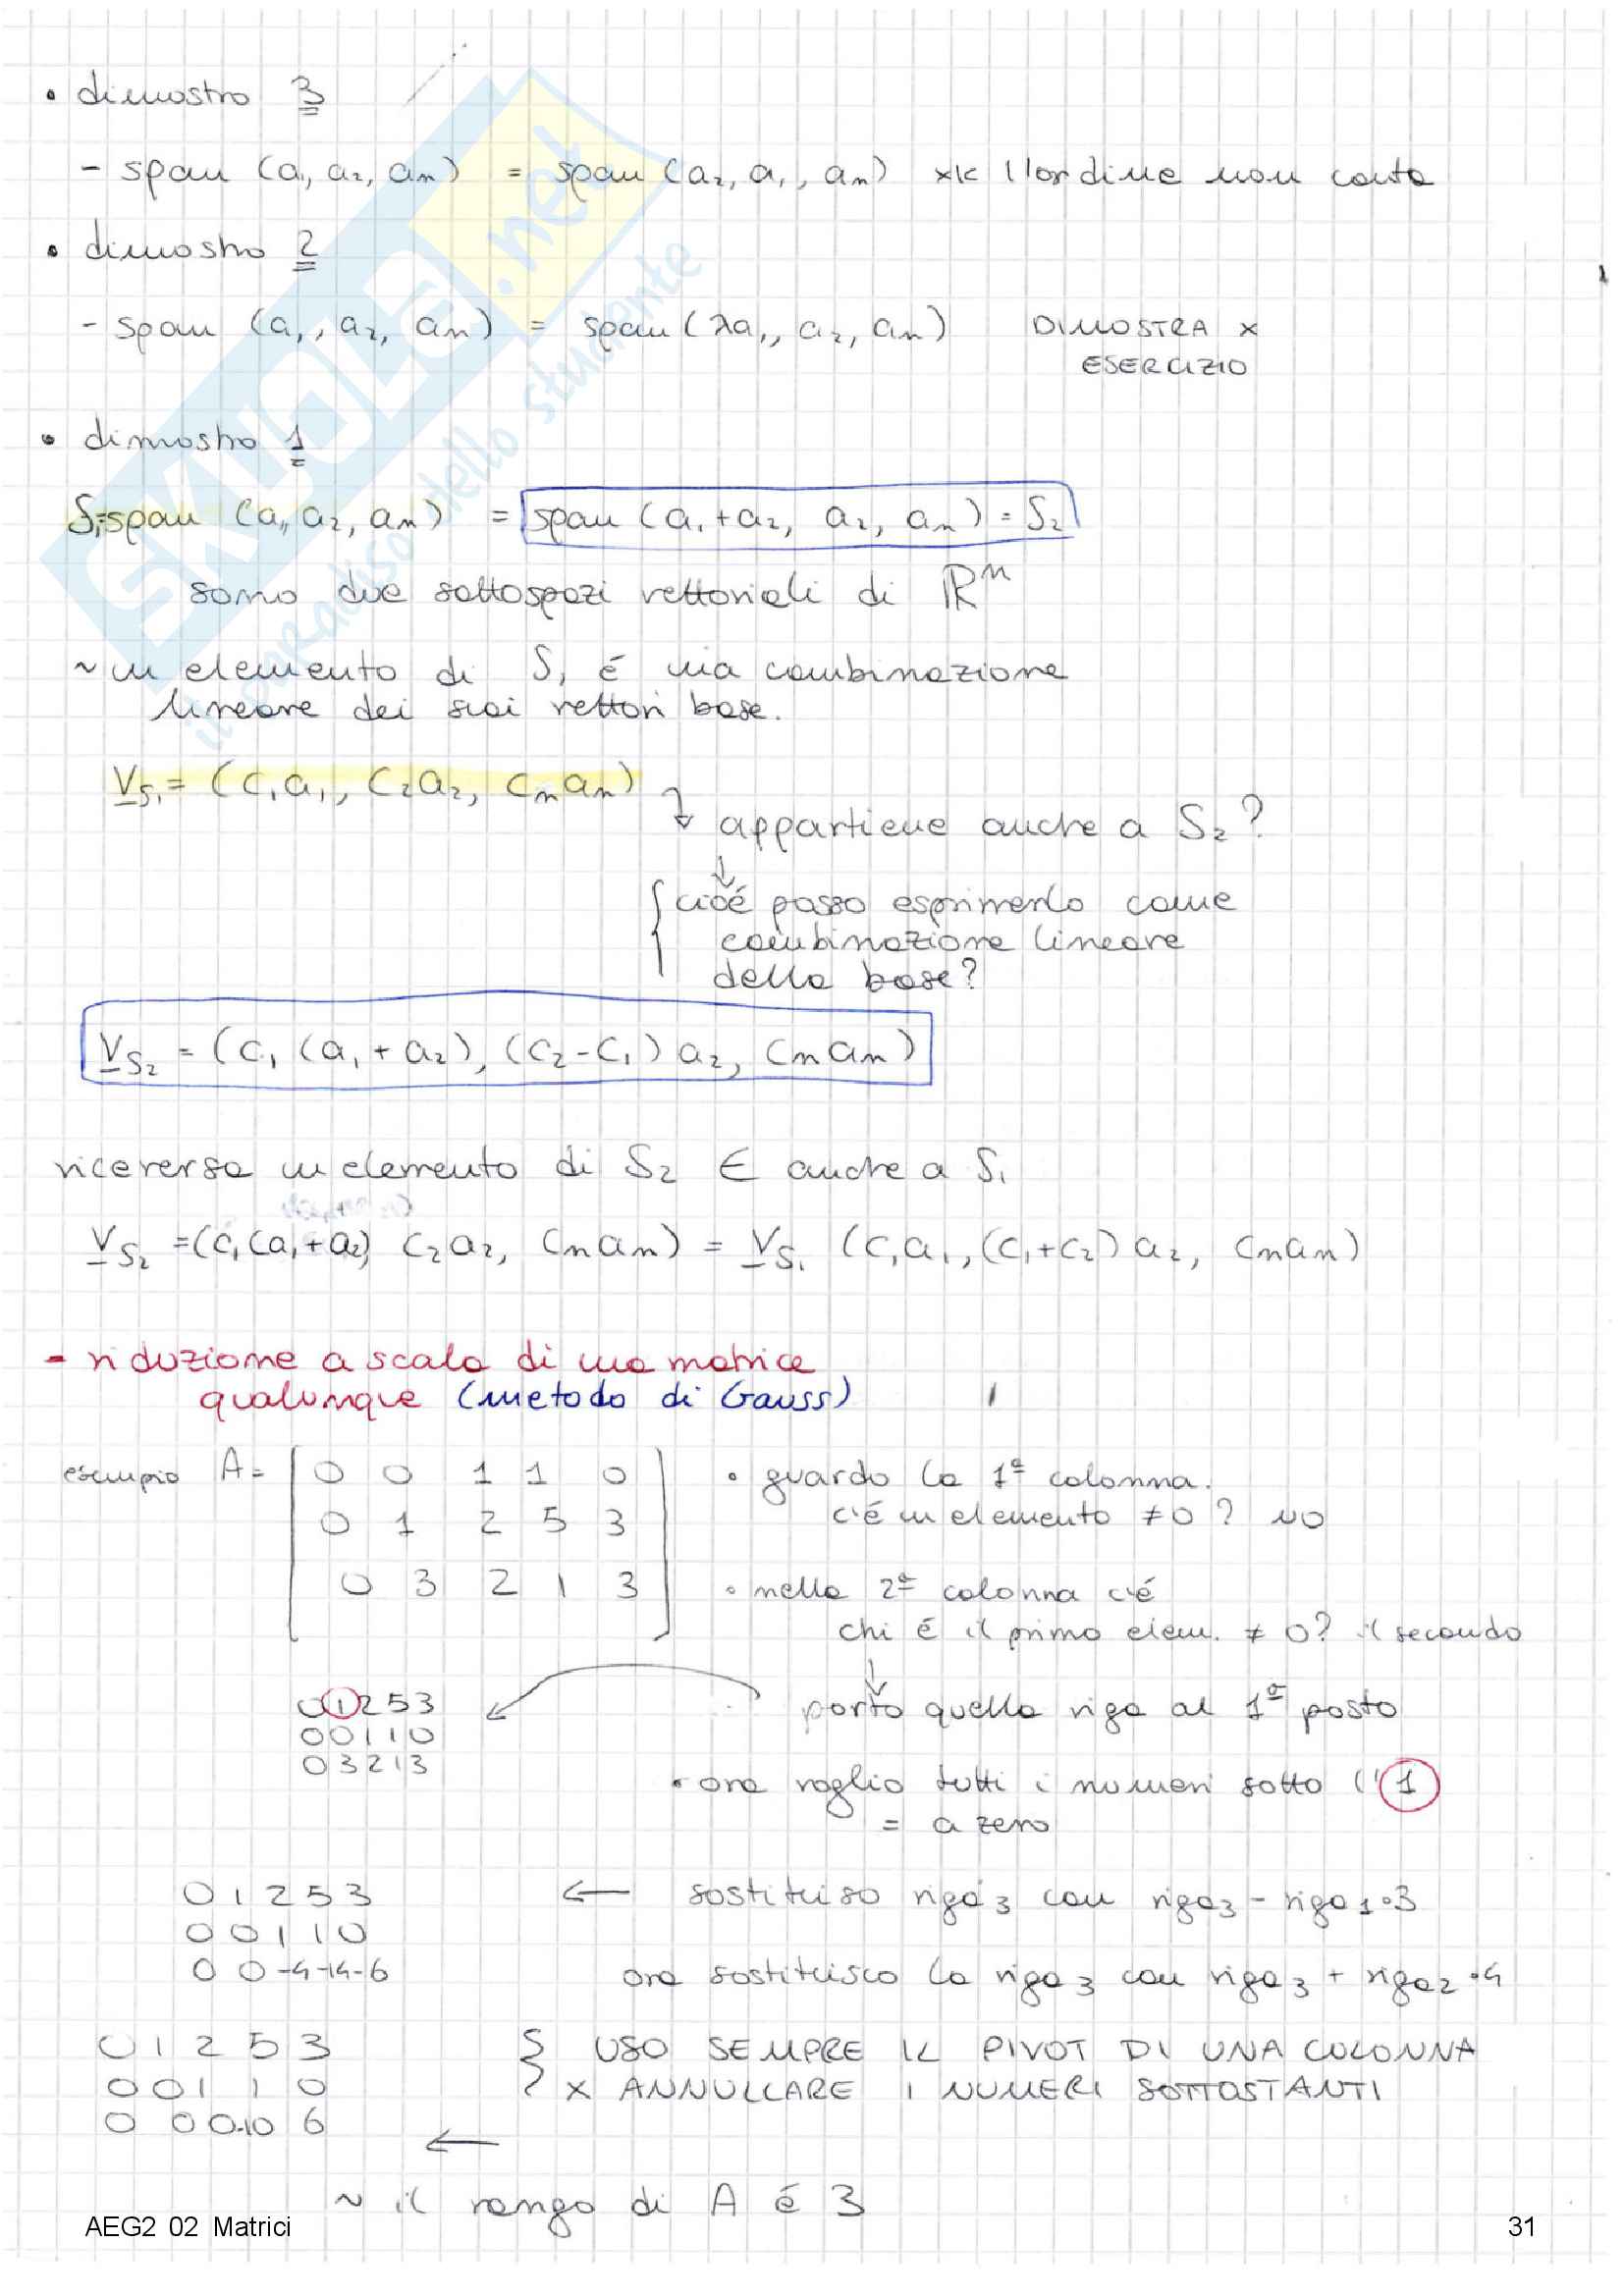 • dimostro 3
- span (a₁, a₂, aₙ) = span (a₂, a₁, aₙ) xk l'ordine non conta
• dimostro 2
- span (a₁, a₂, aₙ) = span (λa₁, a₂, aₙ) DIMOSTRA x
ESERCIZIO
• dimostro 1
S₁=span (a₁, a₂, aₙ) = span (a₁+a₂, a₂, aₙ) = S₂
sono due sottospazi vettoriali di ℝⁿ
~ un elemento di S₁ é una combinazione
lineare dei suoi vettori base.
V_S₁ = (c₁a₁, c₂a₂, cₙaₙ)
appartiene anche a S₂?
↓
cioé posso esprimerlo come
combinazione lineare
della base?
V_S₂ = (c₁ (a₁+a₂), (c₂-c₁) a₂, cₙaₙ)
viceversa un elemento di S₂ ∈ anche a S₁
V_S₂ =(c₁(a₁+a₂) c₂a₂, cₙaₙ) = V_S₁ (c₁a₁, (c₁+c₂) a₂, cₙaₙ)
- riduzione a scala di una matrice
qualunque (metodo di Gauss)
esempio A= 0 0 1 1 0 • guardo la 1ª colonna.
0 1 2 5 3 c'é un elemento ≠0? NO
0 3 2 1 3 • nella 2ª colonna c'é
chi é il primo elem. ≠ 0? il secondo
↓
0 1 2 5 3 porto quella riga al 1º posto
0 0 1 1 0
0 3 2 1 3
• ora voglio tutti i numeri sotto l'1
= a zero
0 1 2 5 3 ← sostituiso riga₃ con riga₃ - riga₁•3
0 0 1 1 0
0 0 -4 -14 -6 ora sostituisco la riga₃ con riga₃ + riga₂•4
0 1 2 5 3 USO SEMPRE IL PIVOT DI UNA COLONNA
0 0 1 1 0 x ANNULLARE I NUMERI SOTTOSTANTI
0 0 0 -10 6 ←
~ il rango di A é 3
AEG2 02 Matrici 31
SKUOLA.net
il paradiso dello studente